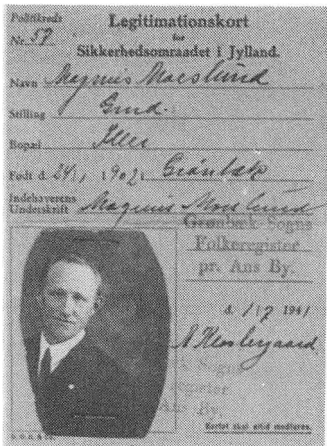 Politikreds
Nr. 57
Legitimationskort
for
Sikkerhedsomraadet i Jylland.
Navn Magnus Moeslund
Stilling Gmd.
Bopæl Iller
Født d. 24/1 1902 i Grønbæk
Indehaverens
Underskrift Magnus Moeslund
Grønbæk Sogns
Folkeregister
pr. Ans By.
d. 1/7 1941
Sogns
register
Ans By.
Kortet skal altid medføres.